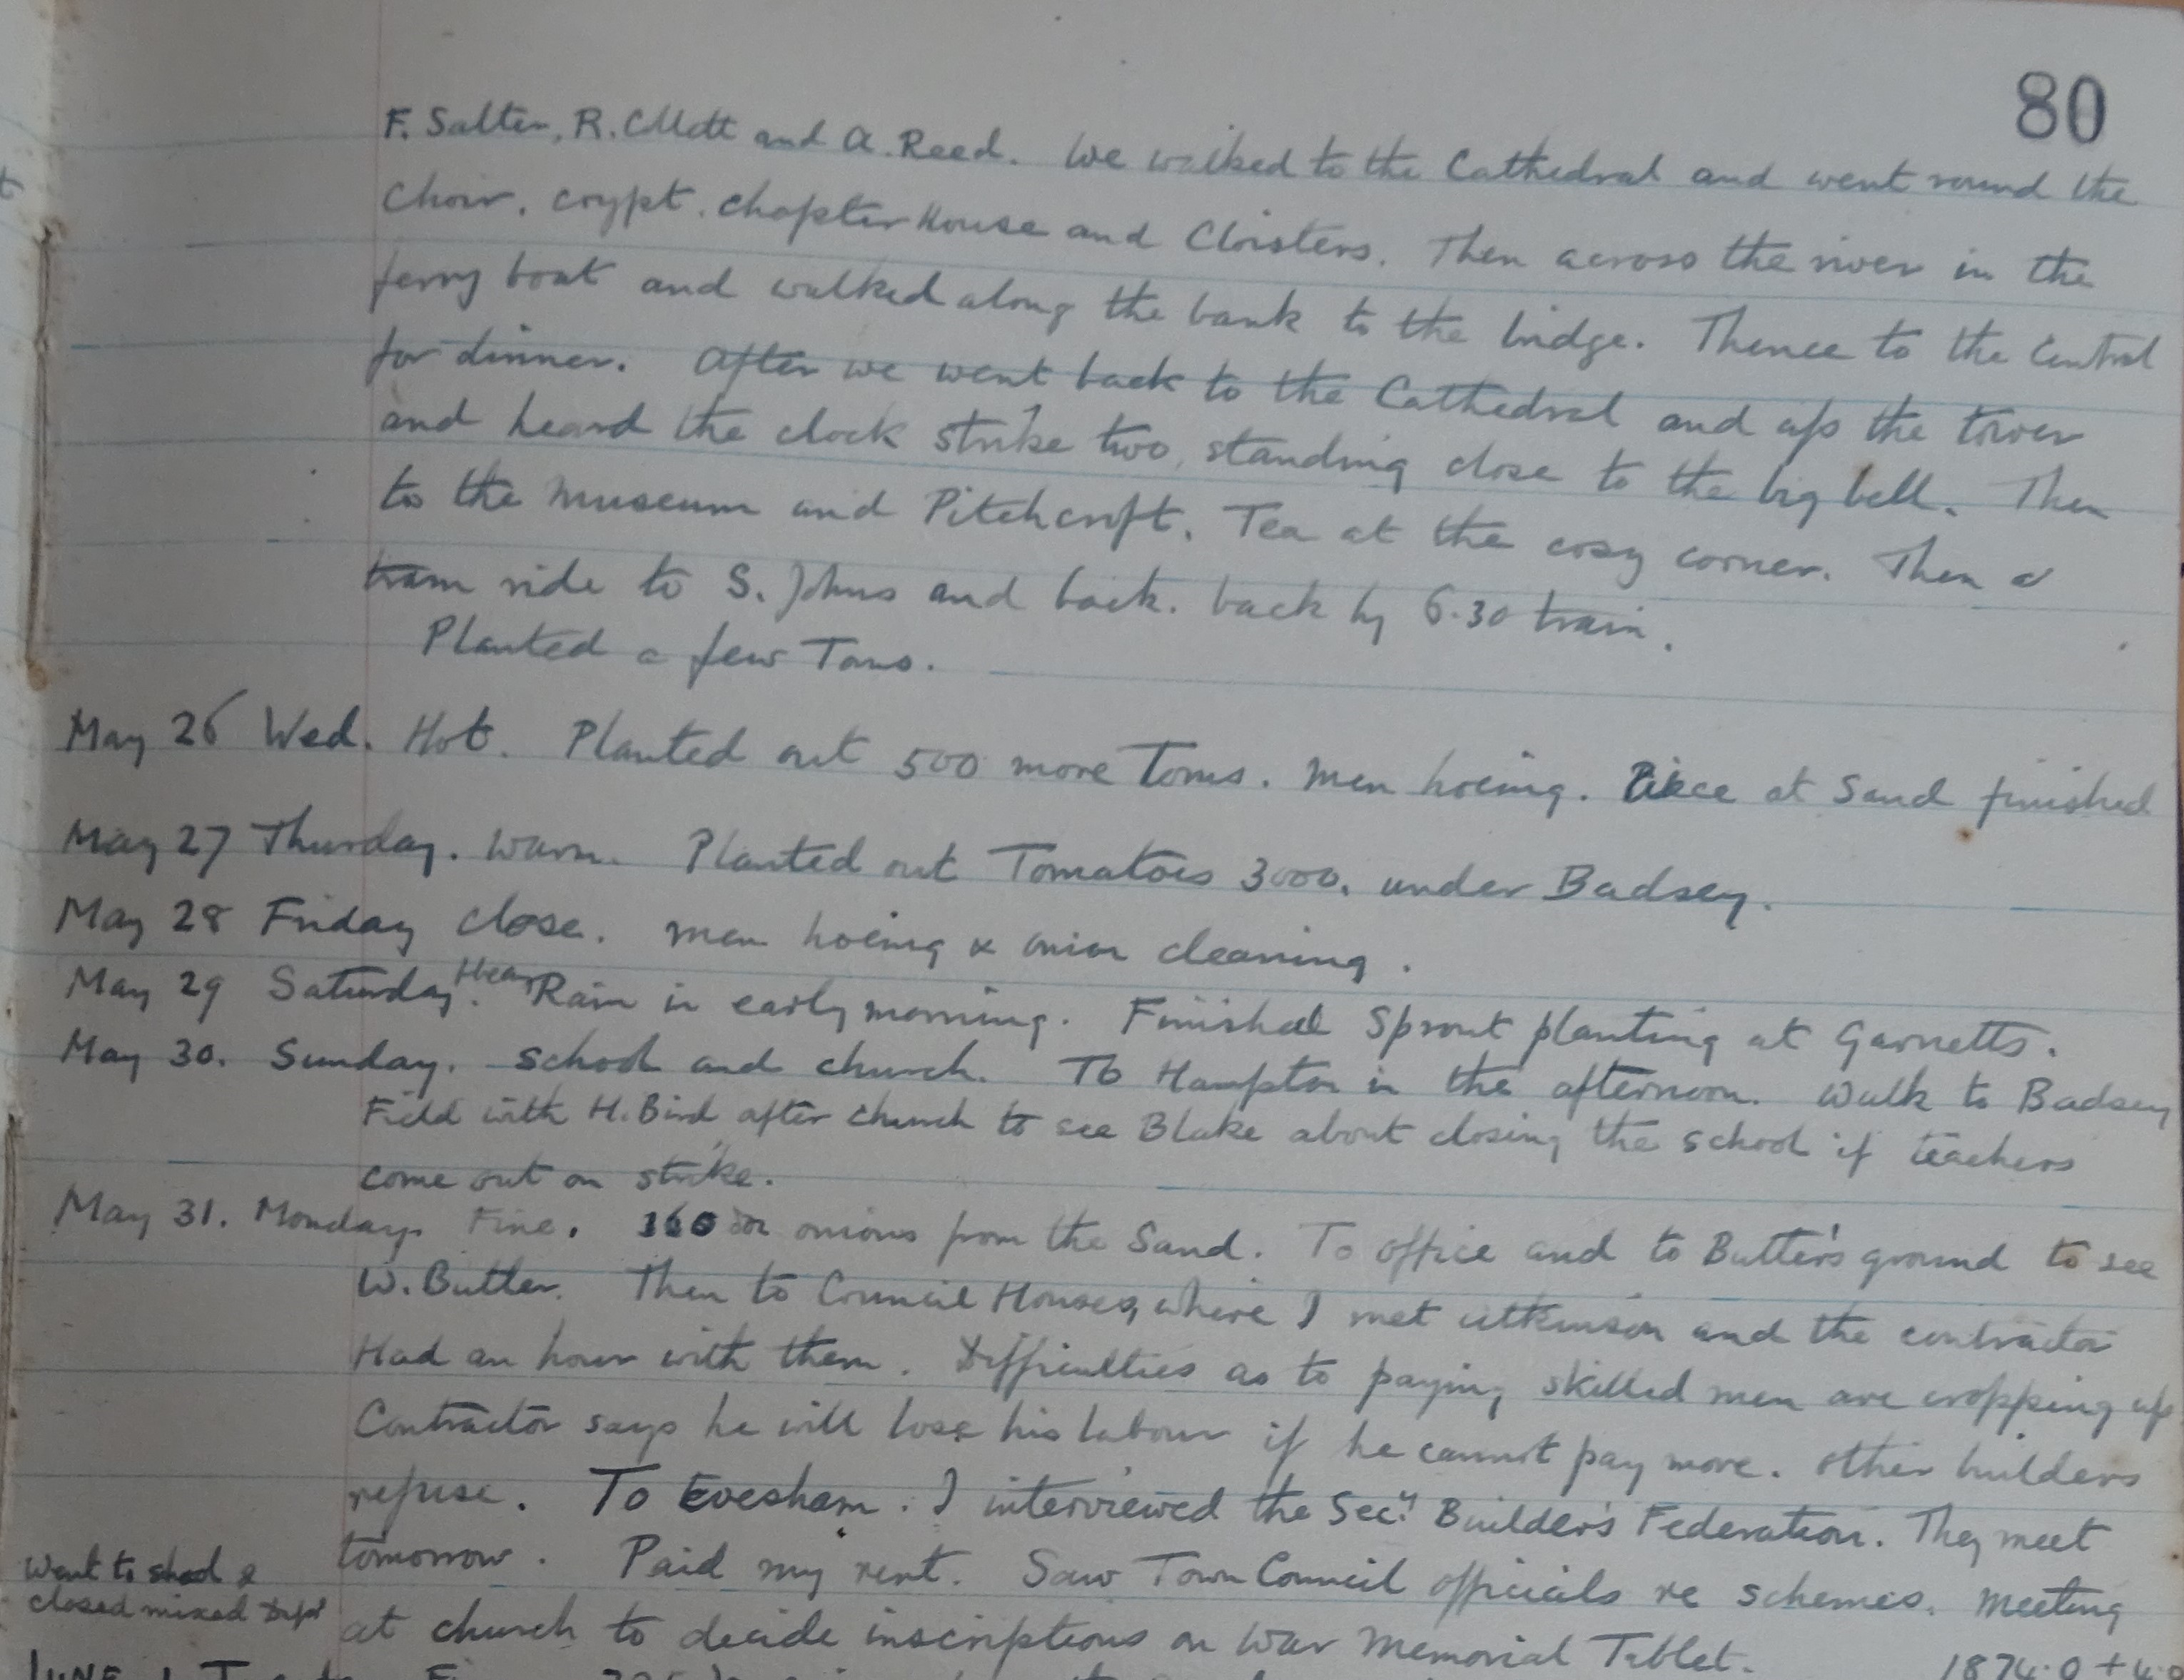 80
F. Salter, R. Mott and A. Reed. We walked to the Cathedral and went round the
Choir, crypt, chapter House and Cloisters. Then across the river in the
ferry boat and walked along the bank to the bridge. Thence to the Central
for dinner. After we went back to the Cathedral and up the tower
and heard the clock strike two, standing close to the big bell. Then
to the museum and Pitchcroft. Tea at the cosy corner. Then a
tram ride to S. Johns and back. back by 6.30 train.
Planted a few Toms.
May 26 Wed. Hot. Planted out 500 more Toms. Men hoeing. Piece at Sand finished
May 27 Thursday. Warm. Planted out Tomatoes 3000. under Badsey.
May 28 Friday close. men hoeing & onion cleaning.
May 29 Saturday. Heavy Rain in early morning. Finished Sprout planting at Garnetts.
May 30. Sunday. School and church. To Hampton in the afternoon. Walk to Badsey
Field with H. Bird after church to see Blake about closing the school if teachers
come out on strike.
May 31. Monday. Fine. 160 onions from the Sand. To office and to Butler's ground to see
W. Butler. Then to Council Houses, where I met Atkinson and the contractor
Had an hour with them. Difficulties as to paying skilled men are cropping up
Contractor says he will lose his labour if he cannot pay more. other builders
refuse. To Evesham. I interviewed the Secy. Builder's Federation. They meet
tomorrow. Paid my rent. Saw Town Council officials re schemes. Meeting
Went to school &
closed mixed Dept
at church to decide inscriptions on War Memorial Tablet.
JUNE 1